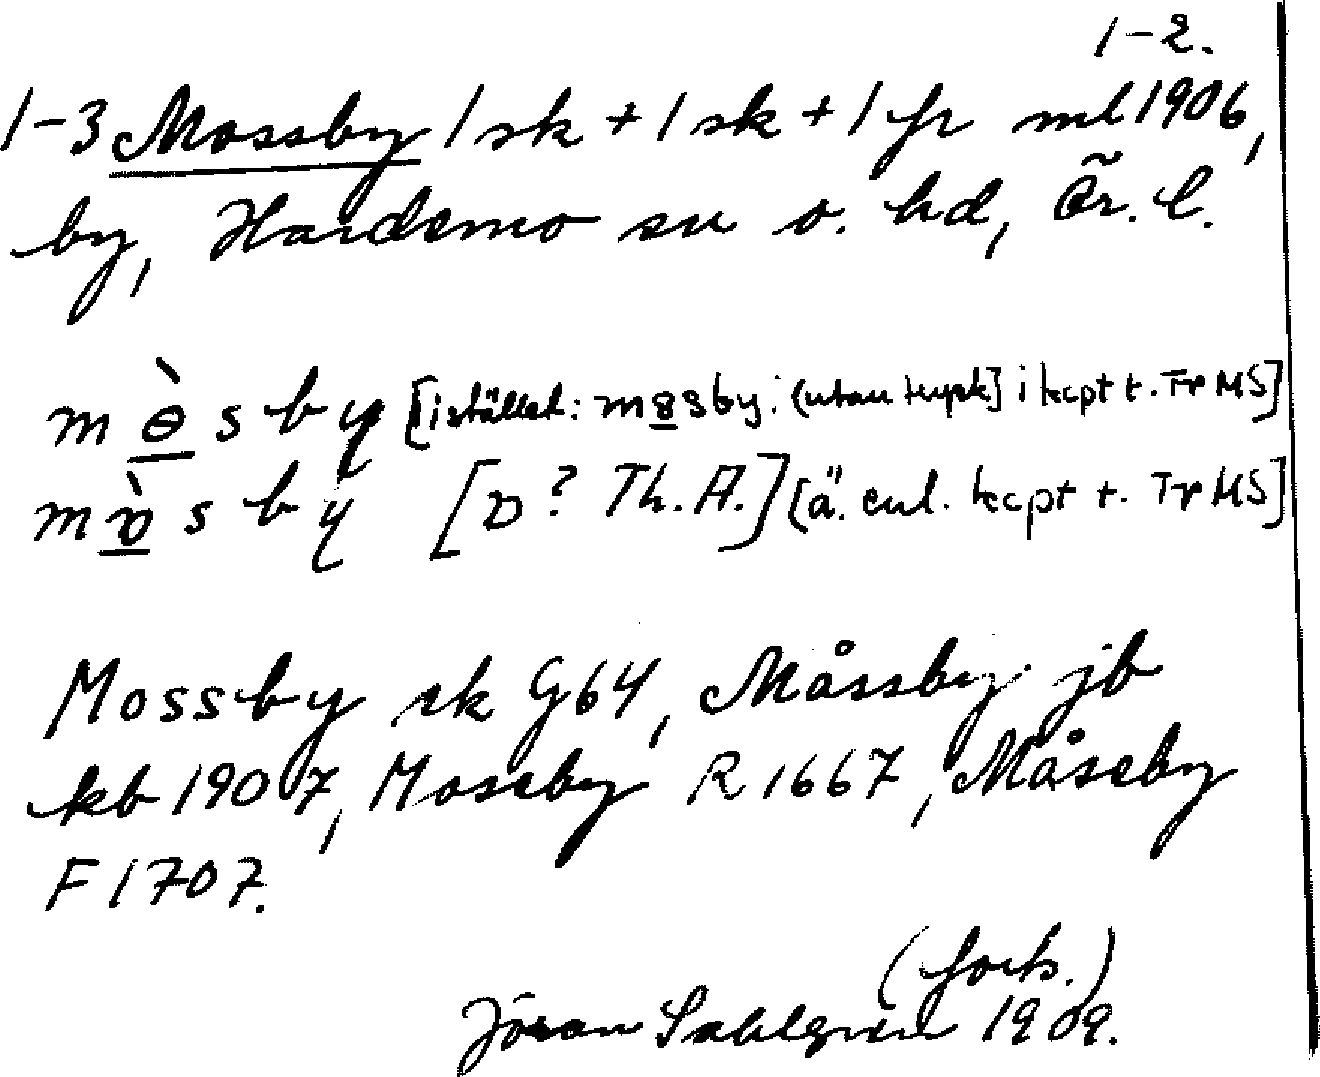 1-2.
1-3 Mossby 1 sk + 1 sk + 1 fr ml 1906,
by, Hardemo sn o. hd, Ör. l.
mɵ̀sby [istället: mɵsby. (utan tryck] i kcpt t. Tr MS]
mv̀sby [v? Th. A.] [ä. enl. kcpt t. Tr MS]
Mossby sk G64, Måssby jb
kb 1907, Mossby R 1667, Måsseby
F 1707.
(forts.)
Jöran Sahlgren 1909.